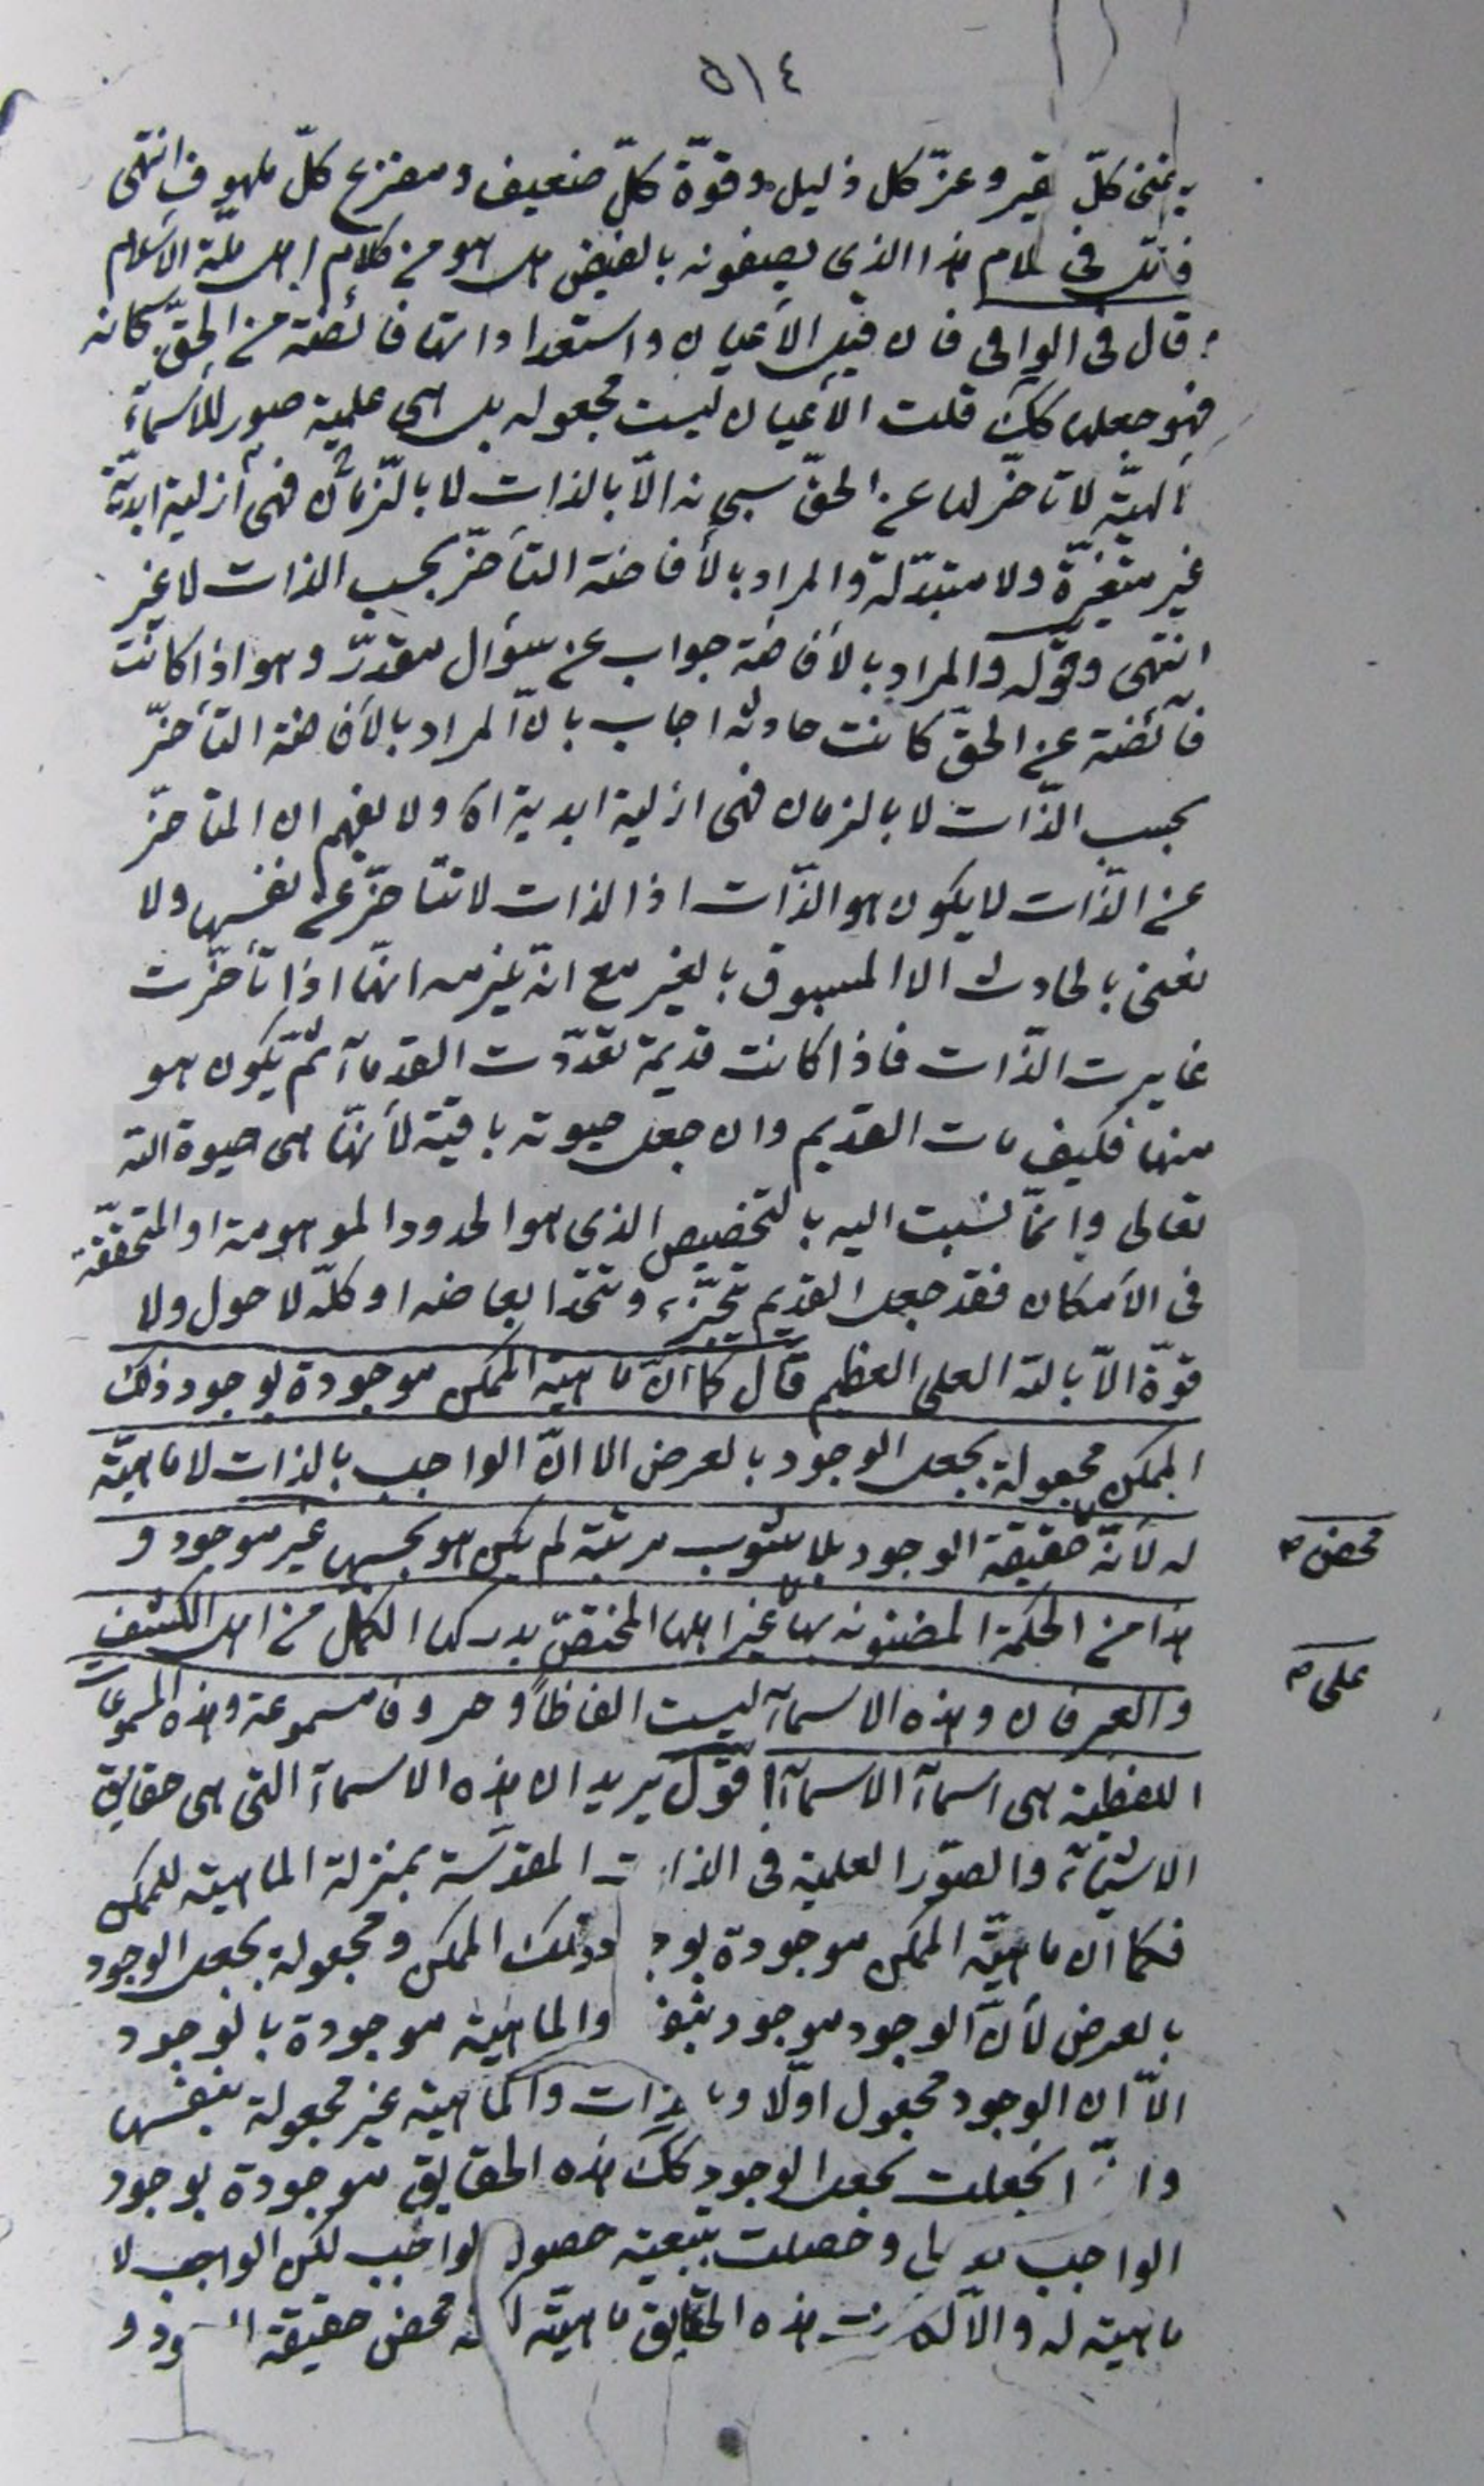 ٥١٤
غنى كلّ فقير و عزّ كل ذليل و قوّة كلّ ضعيف و مفزع كلّ ملهوف انتهى
فانظر فى كلام هذا الذى يصفونه بالفيض هل هو من كلام اهل ملّة الاسلام
قال فى الوافى فان قيل الأعيان و استعداداتها فائضة من الحقّ سبحانه
فهو جعلها كك قلت الأعيان ليست مجعولة بل هى صور علمية للأسماء
الهيّة لا تأخّر لها عن الحقّ سبحانه الّا بالذات لا بالزّمان فهى أزلية ابديّة
غير متغيّرة ولا متبدّلة والمراد بالأفاضة التأخّر بحسب الذات لا غير
انتهى وقوله والمراد بالأفاضة جواب عن سؤال مقدرّ وهو اذا كانت
فآئضة عن الحقّ كانت حادثة اجاب بانّ المراد بالأفاضة التأخّر
بحسب الذّات لا بالزمان فهى ازلية ابدية اه ولا يفهم ان المتأخّر
عن الذّات لا يكون هو الذّات اذ الذات لا تتأخّر عن نفسها ولا
نعنى بالحادث الا المسبوق بالغير مع انّه يلزمه انّها اذا تأخّرت
غايرت الذّات فاذا كانت قديمة تعدّدت القدمآء ثمّ يكون هو
منها فكيف مات القديم وان جعل حيوته باقية لأنّها هى حيوة الله
تعالى وانّما نسبت اليه بالتخصيص الذى هو الحدود الموهومة او المتحقّقة
فى الأمكان فقد جعل القديم تجزّء و تتّحد ابعاضه او كلّه لا حول ولا
قوّة الّا بالله العلى العظيم قال كما انّ ماهية الممكن موجودة بوجود ذلك
الممكن مجعولة بجعل الوجود بالعرض الا انّ الواجب بالذات لا ماهيّة
له لأنّه حقيقة الوجود بلا شوب مرتبة لم يكن هو بحسبها غير موجود و
محض
هذا من الحكمة المضنونه بها غير اهلها المختصّ بدركها الكمّل من اهل الكشف
على
والعرفان وهذه الاسمآء ليست الفاظاً و حروفا مسموعة وهذه المسموعات
اللفظية هى اسمآء الاسمآء اقول يريد ان هذه الاسمآء التى هى حقايق
الاشيآء والصّور العلمية فى الذات المقدّسة بمنزلة الماهية للممكن
فكما ان ماهيّة الممكن موجودة بوجود ذلك الممكن و مجعولة بجعل الوجود
بالعرض لأنّ الوجود موجود بنفسه والماهية موجودة بالوجود
الّا ان الوجود مجعول اوّلا و بالذات والماهية غير مجعولة بنفسها
وانّما انجعلت بجعل الوجود كك هذه الحقايق موجودة بوجود
الواجب تعالى و حصلت بتبعية حصول الواجب لكن الواجب لا
ماهية له والّا لكانت هذه الحقايق ماهيّة له لانه محض حقيقة الوجود و